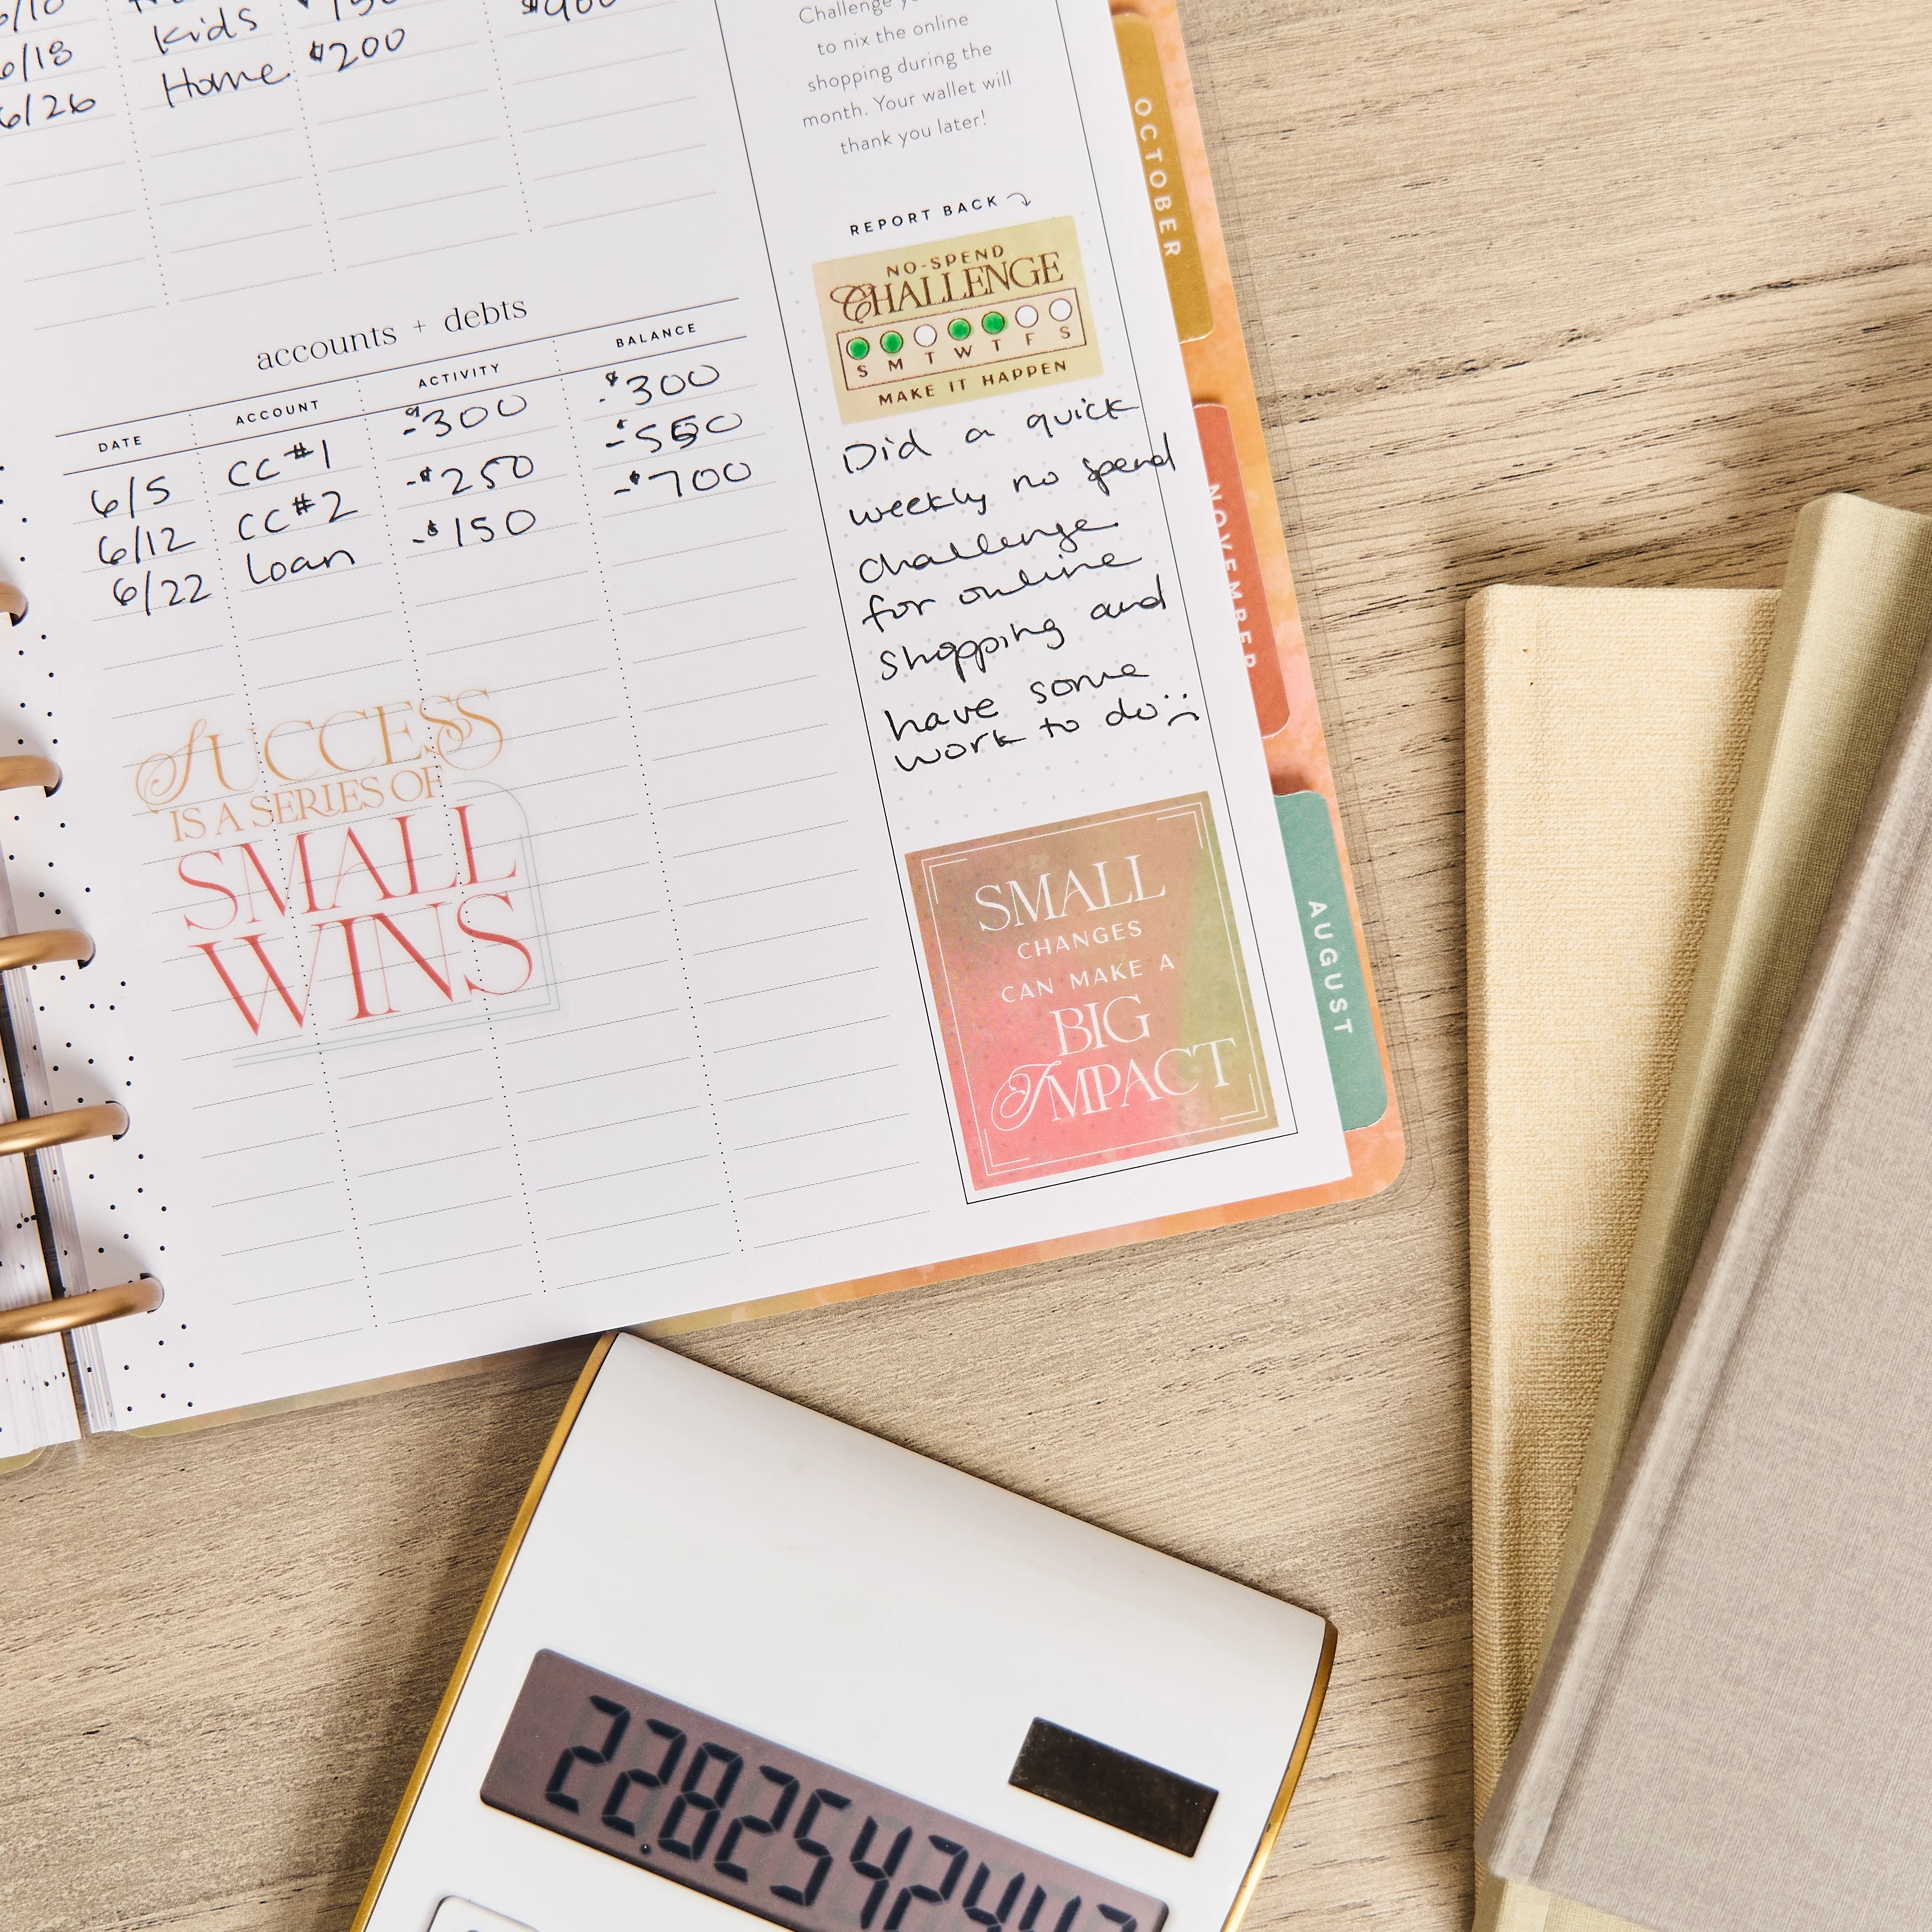 6/18 Kids
6/26 Home $200
Challenge
to nix the online
shopping during the
month. Your wallet will
thank you later!
REPORT BACK
NO-SPEND
CHALLENGE
S M T W T F S
MAKE IT HAPPEN
Did a quick
weekly no spend
challenge.
for online
shopping and
have some
work to do
SMALL
CHANGES
CAN MAKE A
BIG
IMPACT
accounts + debts
DATE ACCOUNT ACTIVITY BALANCE
6/5 CC #1 -$300 -$300
6/12 CC #2 -$250 -$550
6/22 Loan -$150 -$700
SUCCESS
IS A SERIES OF
SMALL
WINS
OCTOBER
NOVEMBER
AUGUST